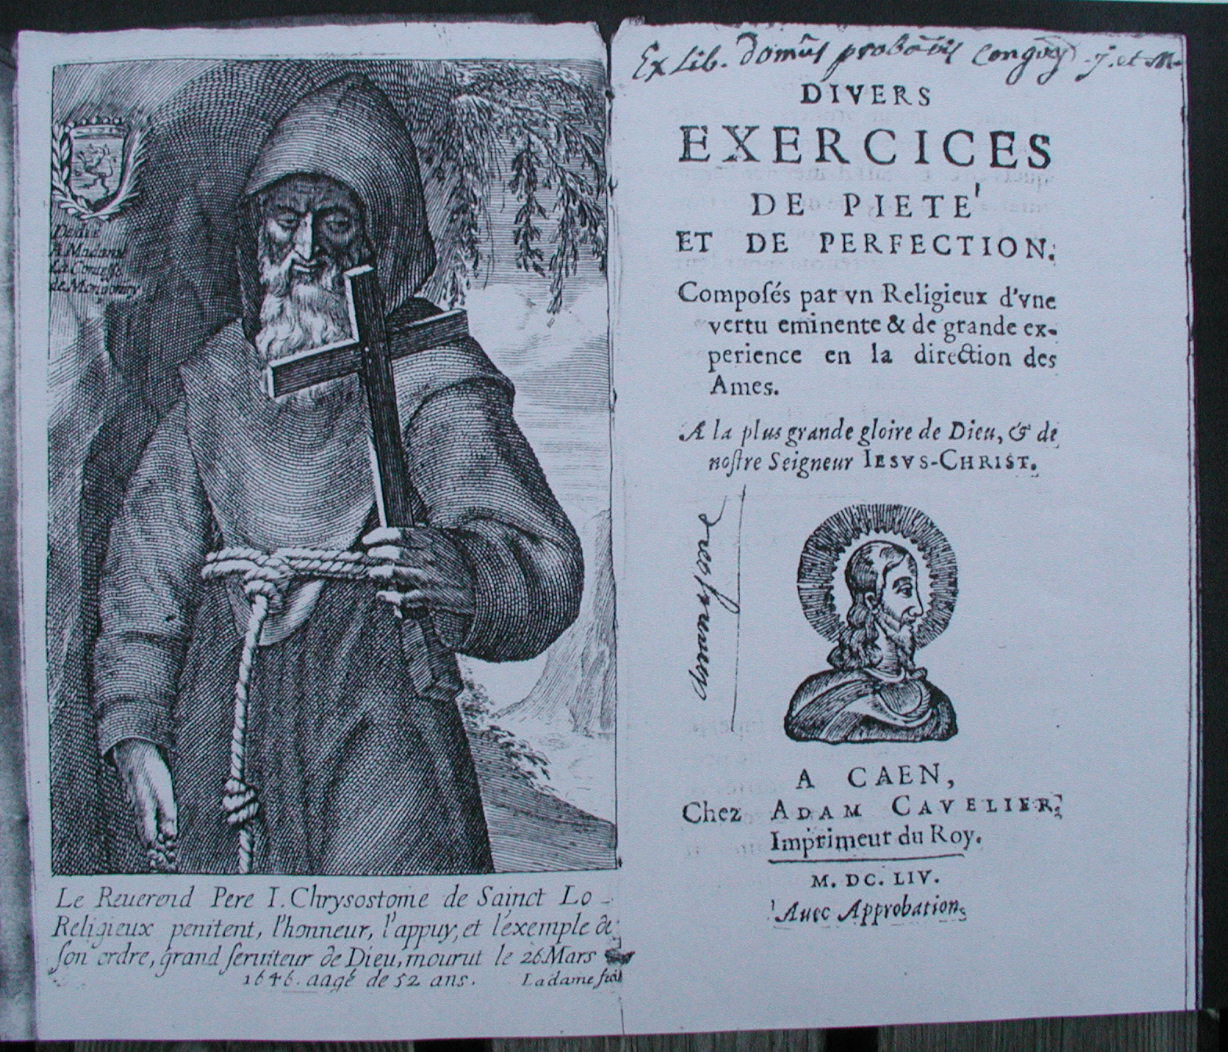 Dedié
A Madame
La Contesse
de Mongomry
Le Reuerend Pere I. Chrysostome de Sainct Lo
Religieux penitent, l'honneur, l'appuy, et l'exemple de
son ordre, grand seruiteur de Dieu, mourut le 26 Mars
1646. aagé de 52 ans. Ladame fecit
Ex Lib. domûs probaõis Congõis J. et M.
DIVERS
EXERCICES
DE PIETE'
ET DE PERFECTION.
Composés par vn Religieux d'vne
vertu eminente & de grande ex-
perience en la direction des
Ames.
A la plus grande gloire de Dieu, & de
nostre Seigneur IESVS-CHRIST.
A CAEN,
Chez ADAM CAVELIER,
Imprimeur du Roy.
M. DC. LIV.
Auec Approbation.